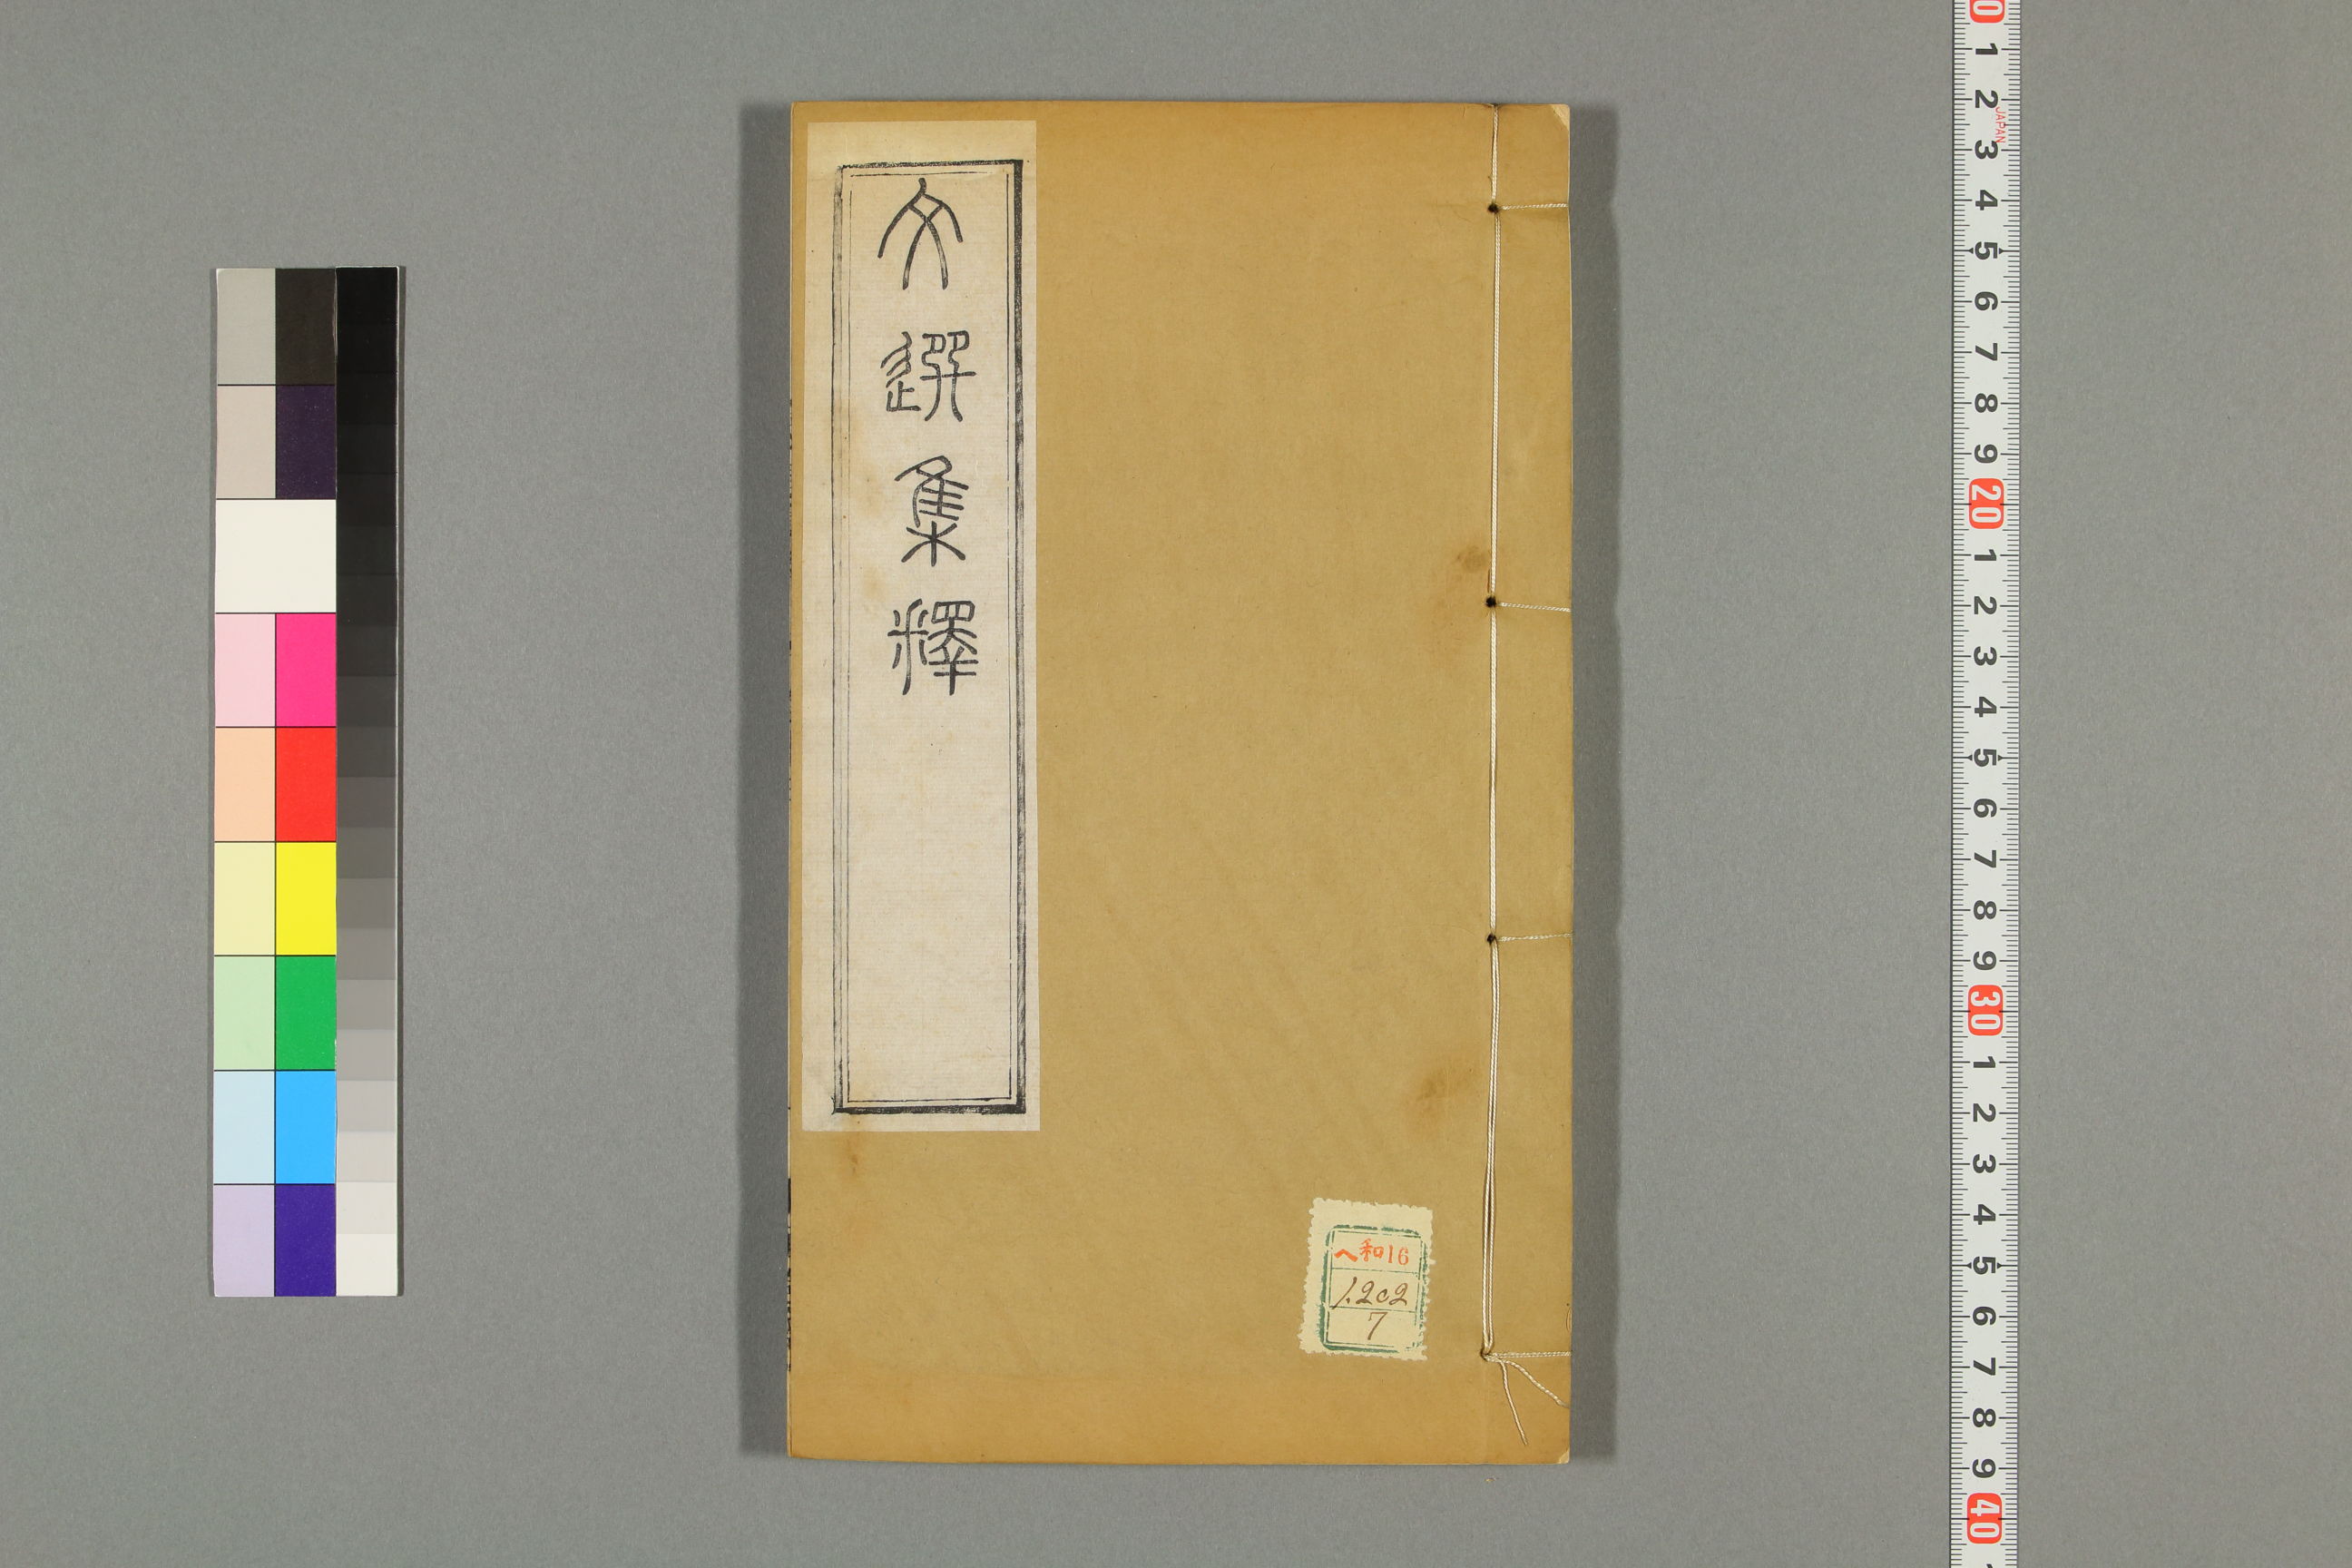 文選集釋
ヘ和16
1.202
7
0
1
2
JAPAN
3
4
5
6
7
8
9
20
1
2
3
4
5
6
7
8
9
30
1
2
3
4
5
6
7
8
9
40